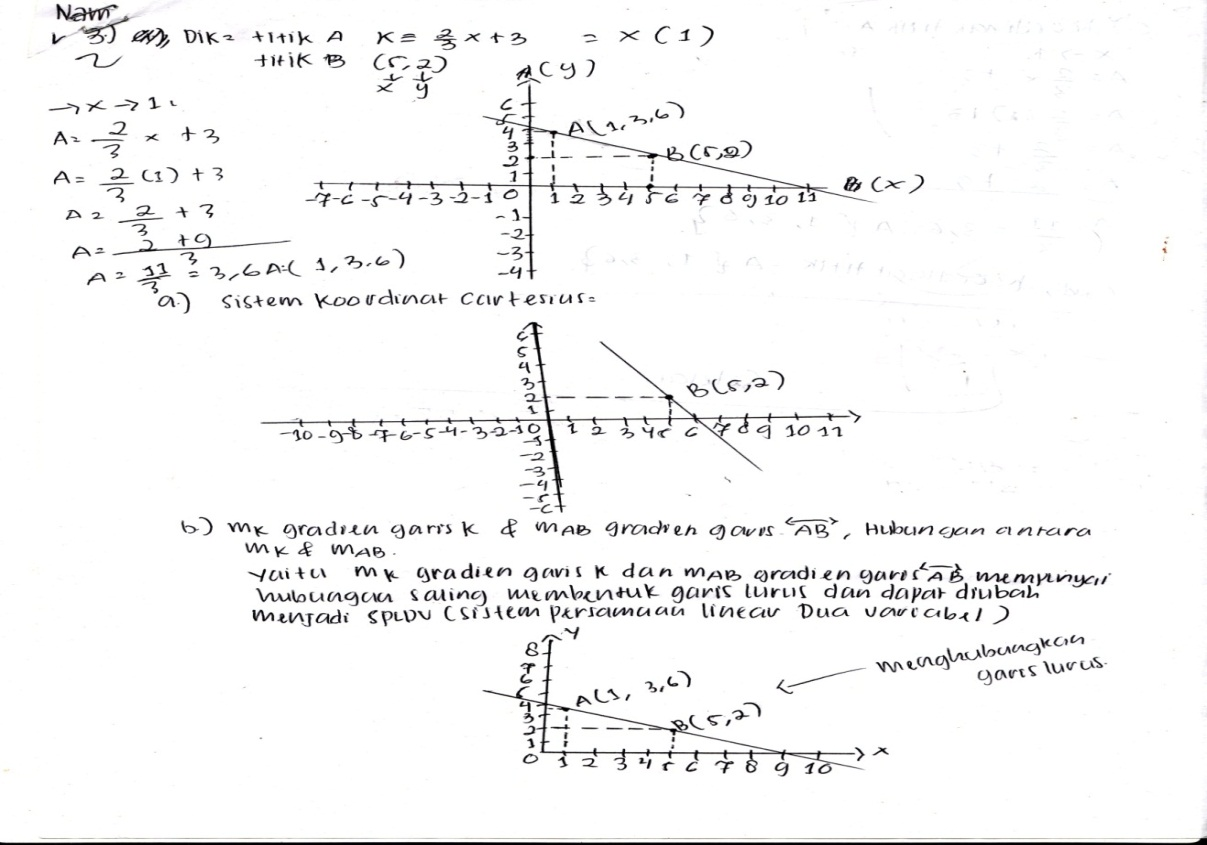 Nam
3.) Dik = titik A K = 2/3 x + 3 = x (1)
2 titik B (5, 2)
x y
→ x → 1.
A = 2/3 x + 3
A = 2/3 (1) + 3
A = 2/3 + 3
A = 2 + 9 / 3
A = 11/3 = 3,6 A = ( 1, 3.6)
A (y)
6
5
4
3
2
1
A(1, 3,6)
B (5,2)
B (x)
-7 -6 -5 -4 -3 -2 -1 0 1 2 3 4 5 6 7 8 9 10 11
-1
-2
-3
-4
a.) sistem koordinat cartesius =
6
5
4
3
2
1
B (5,2)
-10 -9 -8 -7 -6 -5 -4 -3 -2 -1 0 1 2 3 4 5 6 7 8 9 10 11
-1
-2
-3
-4
-5
-6
b.) mK gradien garis K & mAB gradien garis AB, Hubungan antara
mK & mAB.
yaitu mK gradien garis K dan mAB gradien garis AB mempunyai
hubungan saling membentuk garis lurus dan dapat diubah
menjadi SPLDV (sistem persamaan linear Dua variabel)
y
8
7
6
5
4
3
2
1
A(1, 3,6)
B(5,2)
menghubungkan
garis lurus.
x
0 1 2 3 4 5 6 7 8 9 10